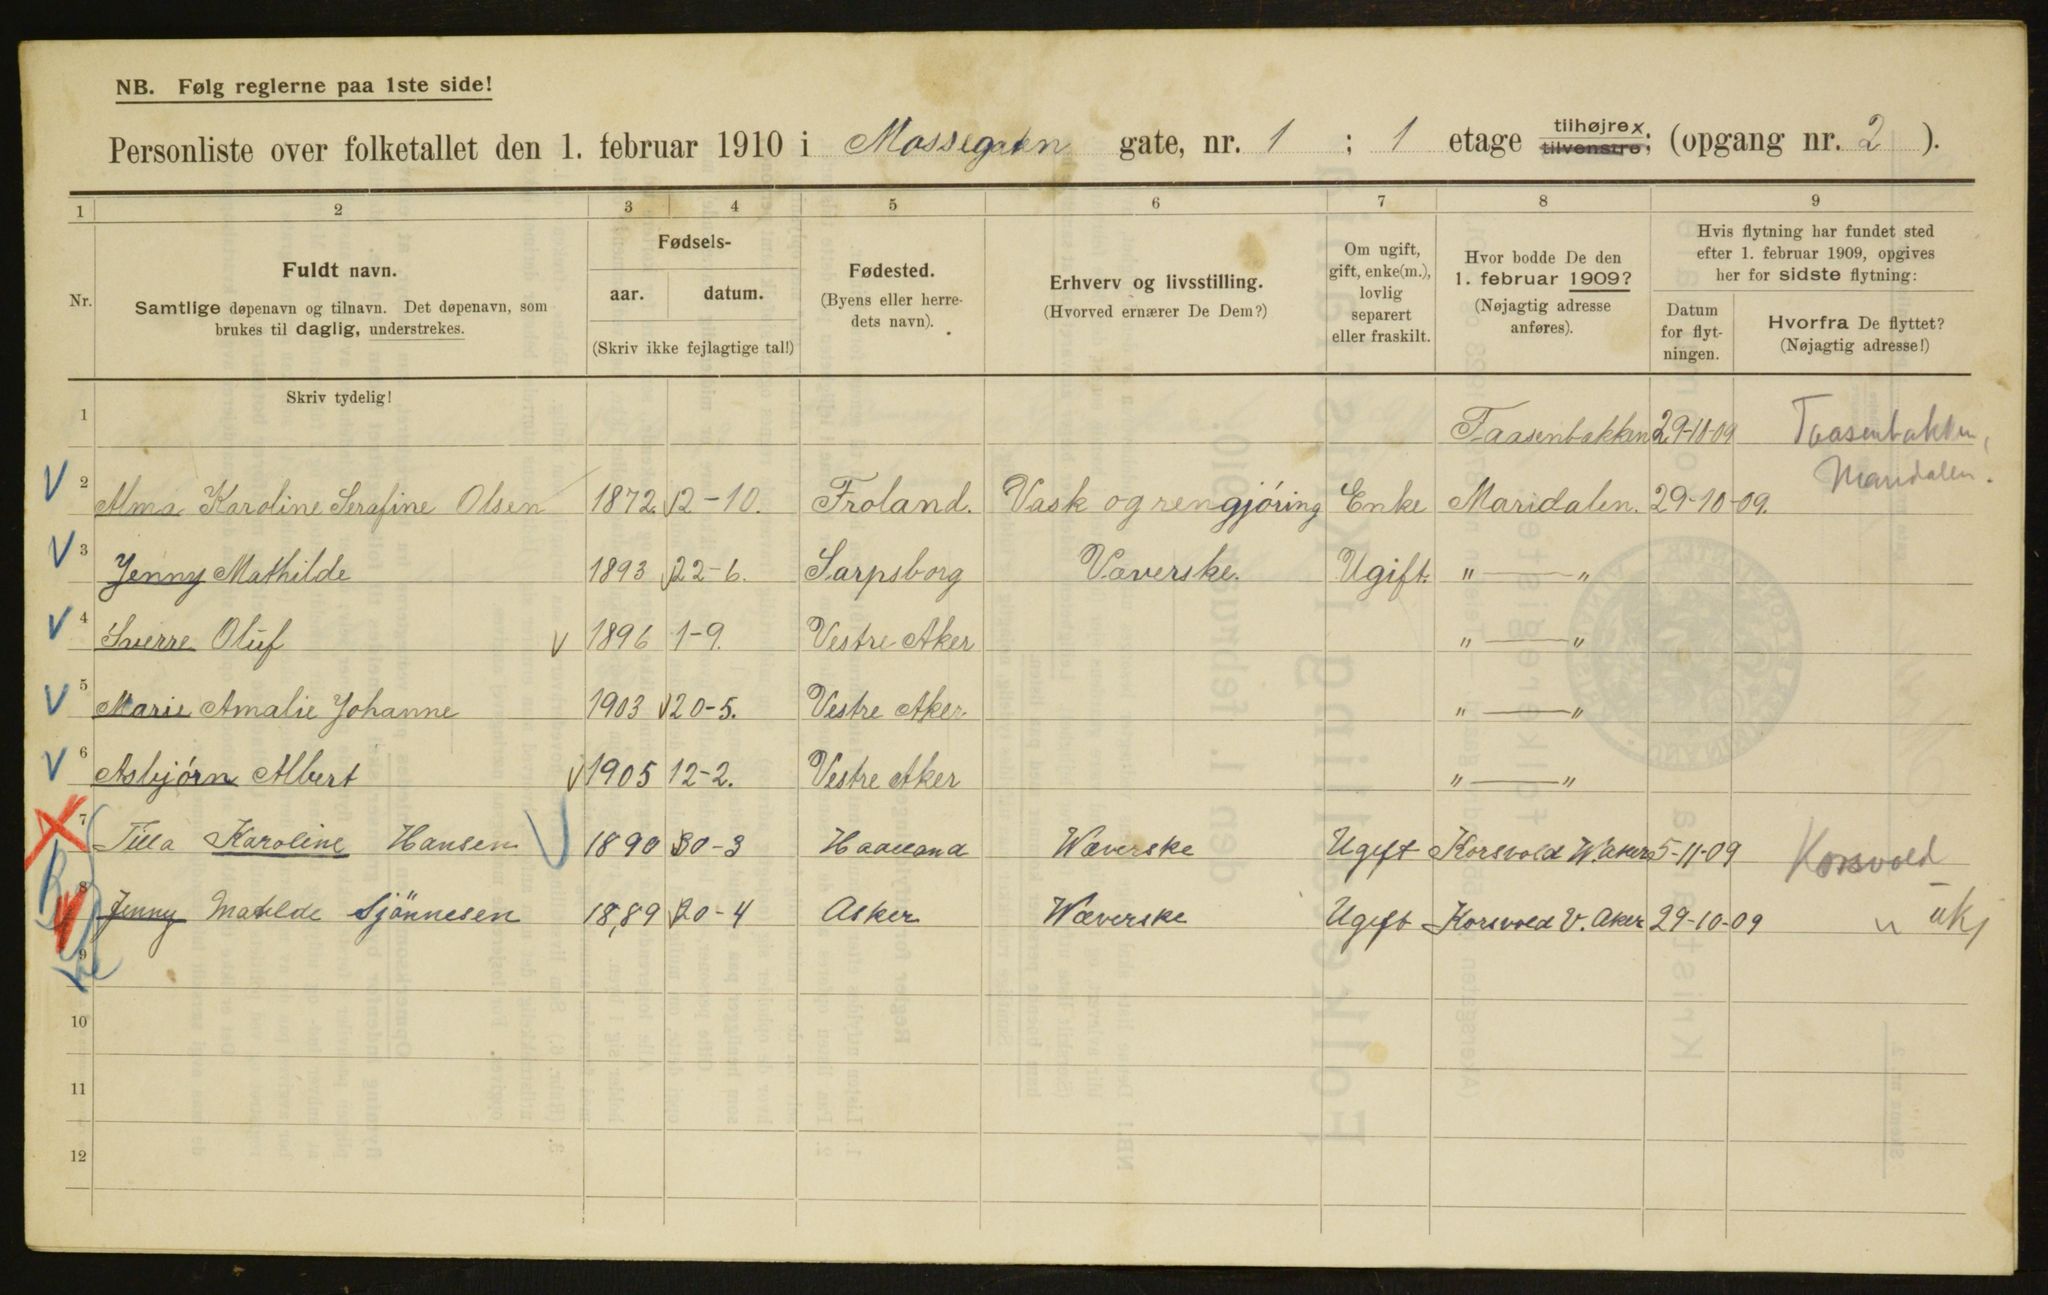 NB. Følg reglerne paa 1ste side!
Personliste over folketallet den 1. februar 1910 i Mossegaten gate, nr. 1 ; 1 etage tilhøjre x tilvenstre; (opgang nr. 2 ).
1 2 3 4 5 6 7 8 9
Nr.
Fuldt navn.
Samtlige døpenavn og tilnavn. Det døpenavn, som
brukes til daglig, understrekes.
Fødsels-
aar. datum.
(Skriv ikke fejlagtige tal!)
Fødested.
(Byens eller herre-
dets navn).
Erhverv og livsstilling.
(Hvorved ernærer De Dem?)
Om ugift,
gift, enke(m.),
lovlig
separert
eller fraskilt.
Hvor bodde De den
1. februar 1909?
(Nøjagtig adresse
anføres).
Hvis flytning har fundet sted
efter 1. februar 1909, opgives
her for sidste flytning:
Datum
for flyt-
ningen.
Hvorfra De flyttet?
(Nøjagtig adresse!)
Skriv tydelig!
1 Taasenbakken 29-10-09 Taasenbakken,
Maridalen.
2 Alma Karoline Serafine Olsen 1872. 12-10. Froland. Vask og rengjøring Enke Maridalen. 29-10-09.
3 Jenny Mathilde 1893 22-6. Sarpsborg Væverske. Ugift. " — "
4 Sverre Oluf 1896 1-9. Vestre Aker " — "
5 Marie Amalie Johanne 1903 20-5. Vestre Aker. " — "
6 Asbjørn Albert 1905 12-2. Vestre Aker " — "
7 Tilla Karoline Hansen 1890 30-3 Wæverske Ugift Korsvold W. Aker 5-11-09 Korsvold
8 Jenny Matilde Sjönnesen 1889 20-4 Asker Wæverske Ugift Korsvold V. Aker 29-10-09 " ukj
9
10
11
12